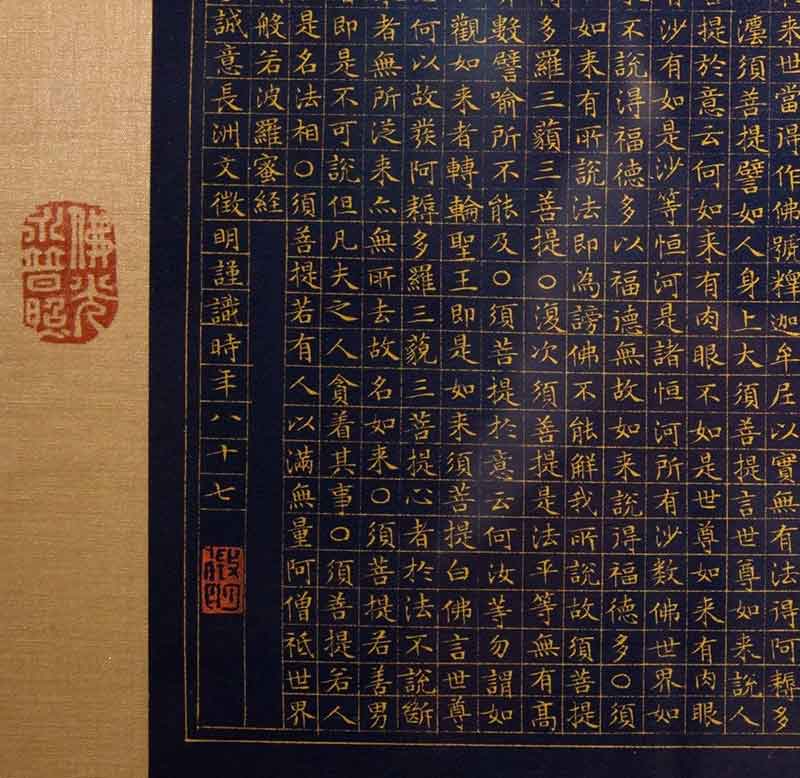 来世當得作佛號釋迦牟尼以實無有法得阿耨多
須菩提譬如人身上大須菩提言世尊如来說人
提於意云何如来有肉眼不如是世尊如来有肉眼
沙有如是沙等恒河是諸恒河所有沙數佛世界如
不說得福德多以福德無故如来說得福德多○須
如来有所說法即為謗佛不能解我所說故須菩提
多羅三藐三菩提○復次須菩提是法平等無有高
數譬喻所不能及○須菩提於意云何汝等勿謂如
觀如来者轉輪聖王即是如来須菩提白佛言世尊
何以故發阿耨多羅三藐三菩提心者於法不說斷
者無所従来亦無所去故名如来○須菩提若善男
即是不可說但凡夫之人貪着其事○須菩提若人
是名法相○須菩提若有人以滿無量阿僧祇世界
般若波羅蜜經
誠意長洲文徵明謹識時年八十七
徵明
佛光
永普照